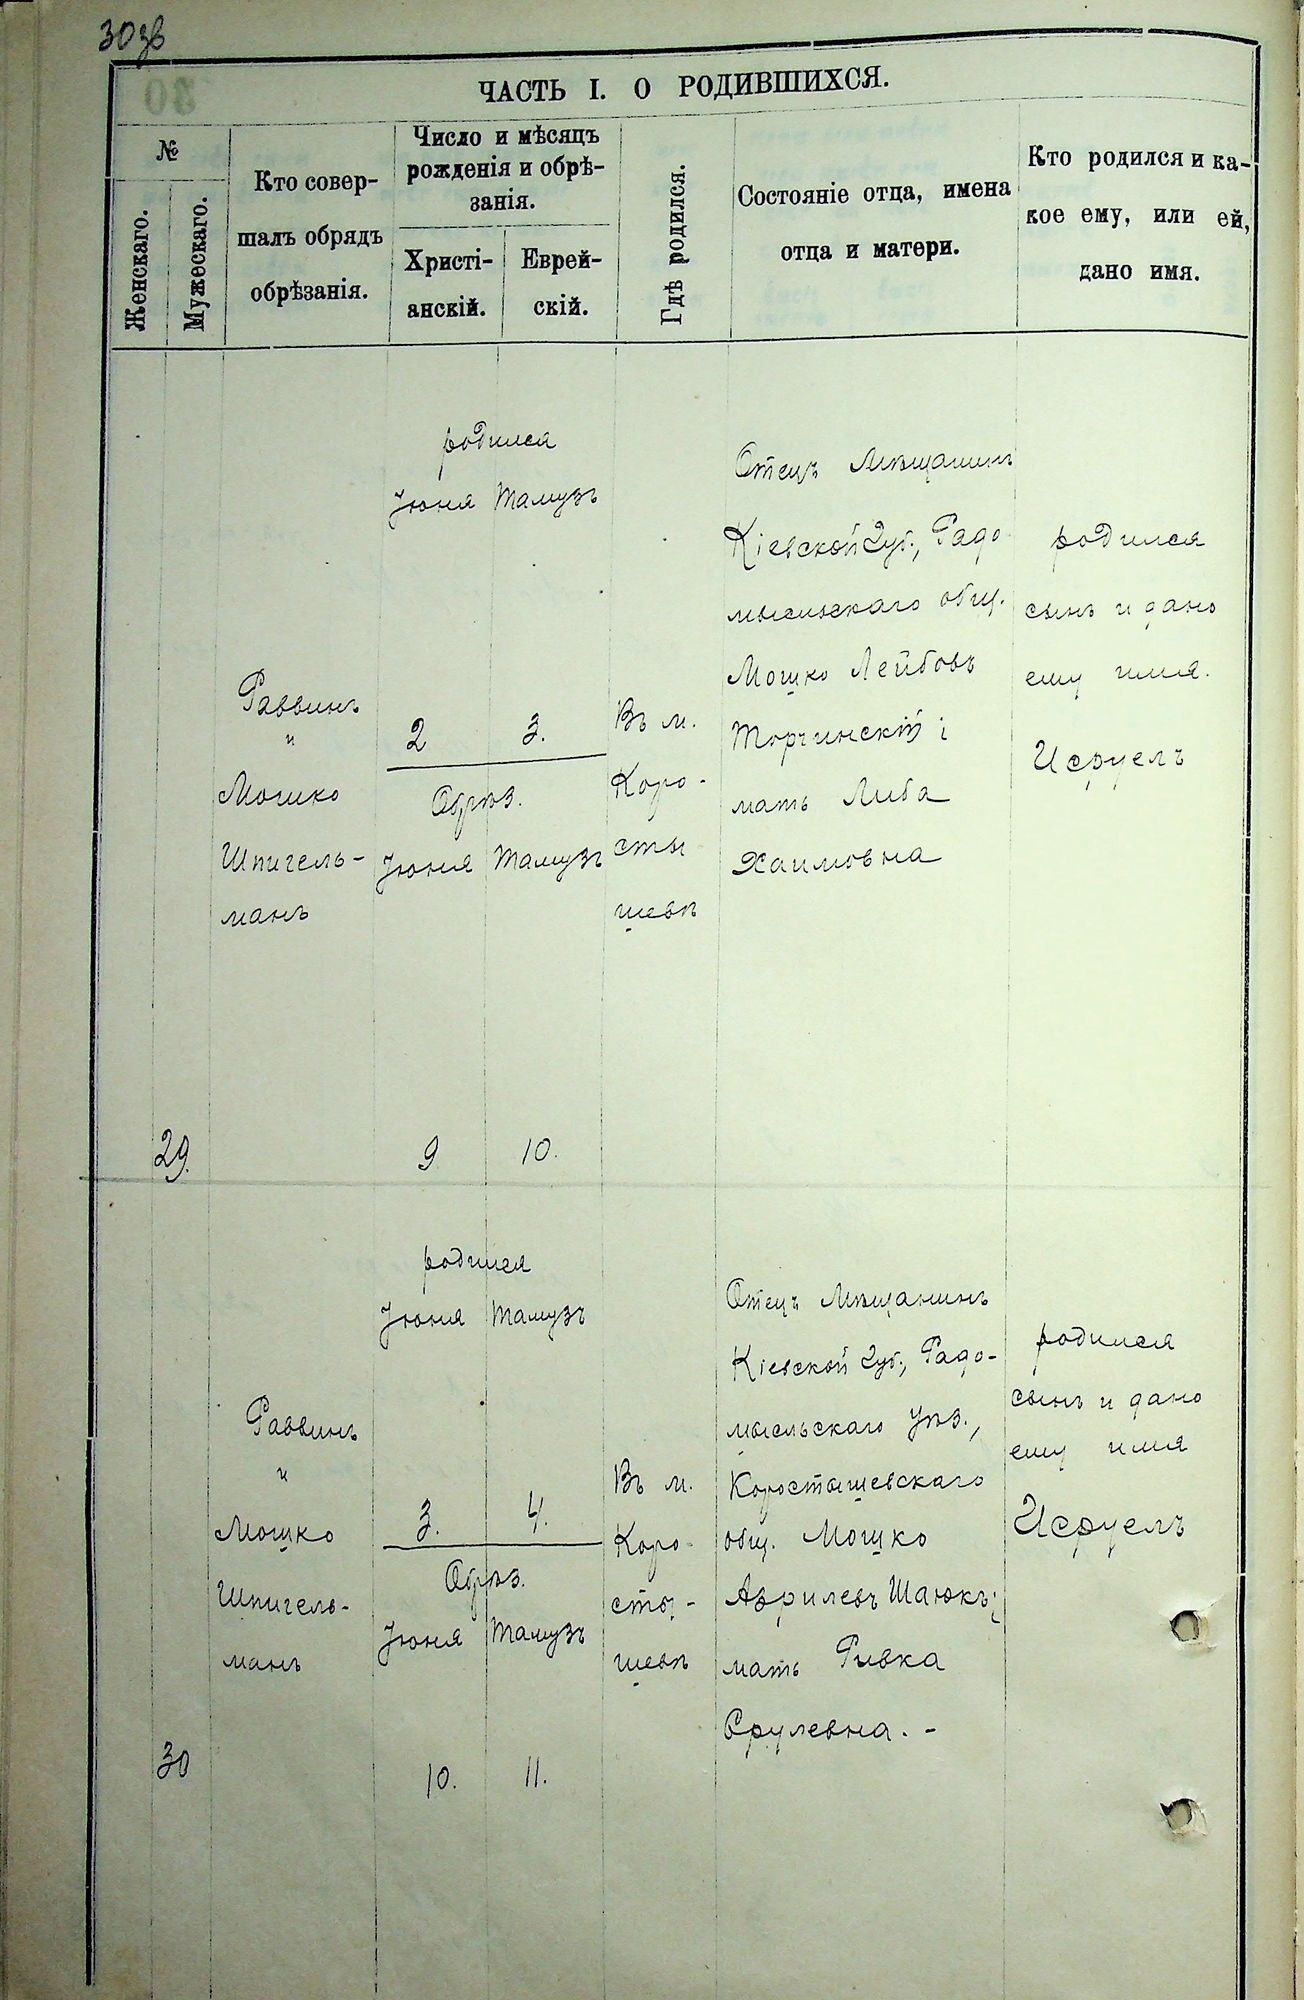 30 зв
ЧАСТЬ I. О РОДИВШИХСЯ.
№
Женскаго.
Мужескаго.
Кто совер-
шалъ обрядъ
обрѣзанія.
Число и мѣсяцъ
рожденія и обрѣ-
занія.
Христі-
анскій.
Еврей-
скій.
Гдѣ родился.
Состояніе отца, имена
отца и матери.
Кто родился и ка-
кое ему, или ей,
дано имя.
29.
Раввинъ
и
Мошко
Шпигель-
манъ
родился
Іюня Тамузъ
2 3.
Обрѣз.
Іюня Тамузъ
9 10.
Въ м.
Коро-
сты
шевѣ
Отецъ Мѣщанинъ
Кіевской Губ., Радо
мысльскаго общ.
Мошко Лейбовъ
Торчинскій і
мать Либа
Хаимовна
родился
сынъ и дано
ему имя.
Исруелъ
30
Раввинъ
и
Мошко
Шпигель-
манъ
родился
Іюня Тамузъ
3. 4.
Обрѣз.
Іюня Тамузъ
10. 11.
Въ м.
Коро-
сты-
шевѣ
Отецъ Мѣщанинъ
Кіевской Губ., Радо-
мысльскаго Уѣз.,
Коростышевскаго
общ. Мошко
Азрилевъ Шаюкъ;
мать Ривка
Срулевна. -
родился
сынъ и дано
ему имя
Исруелъ